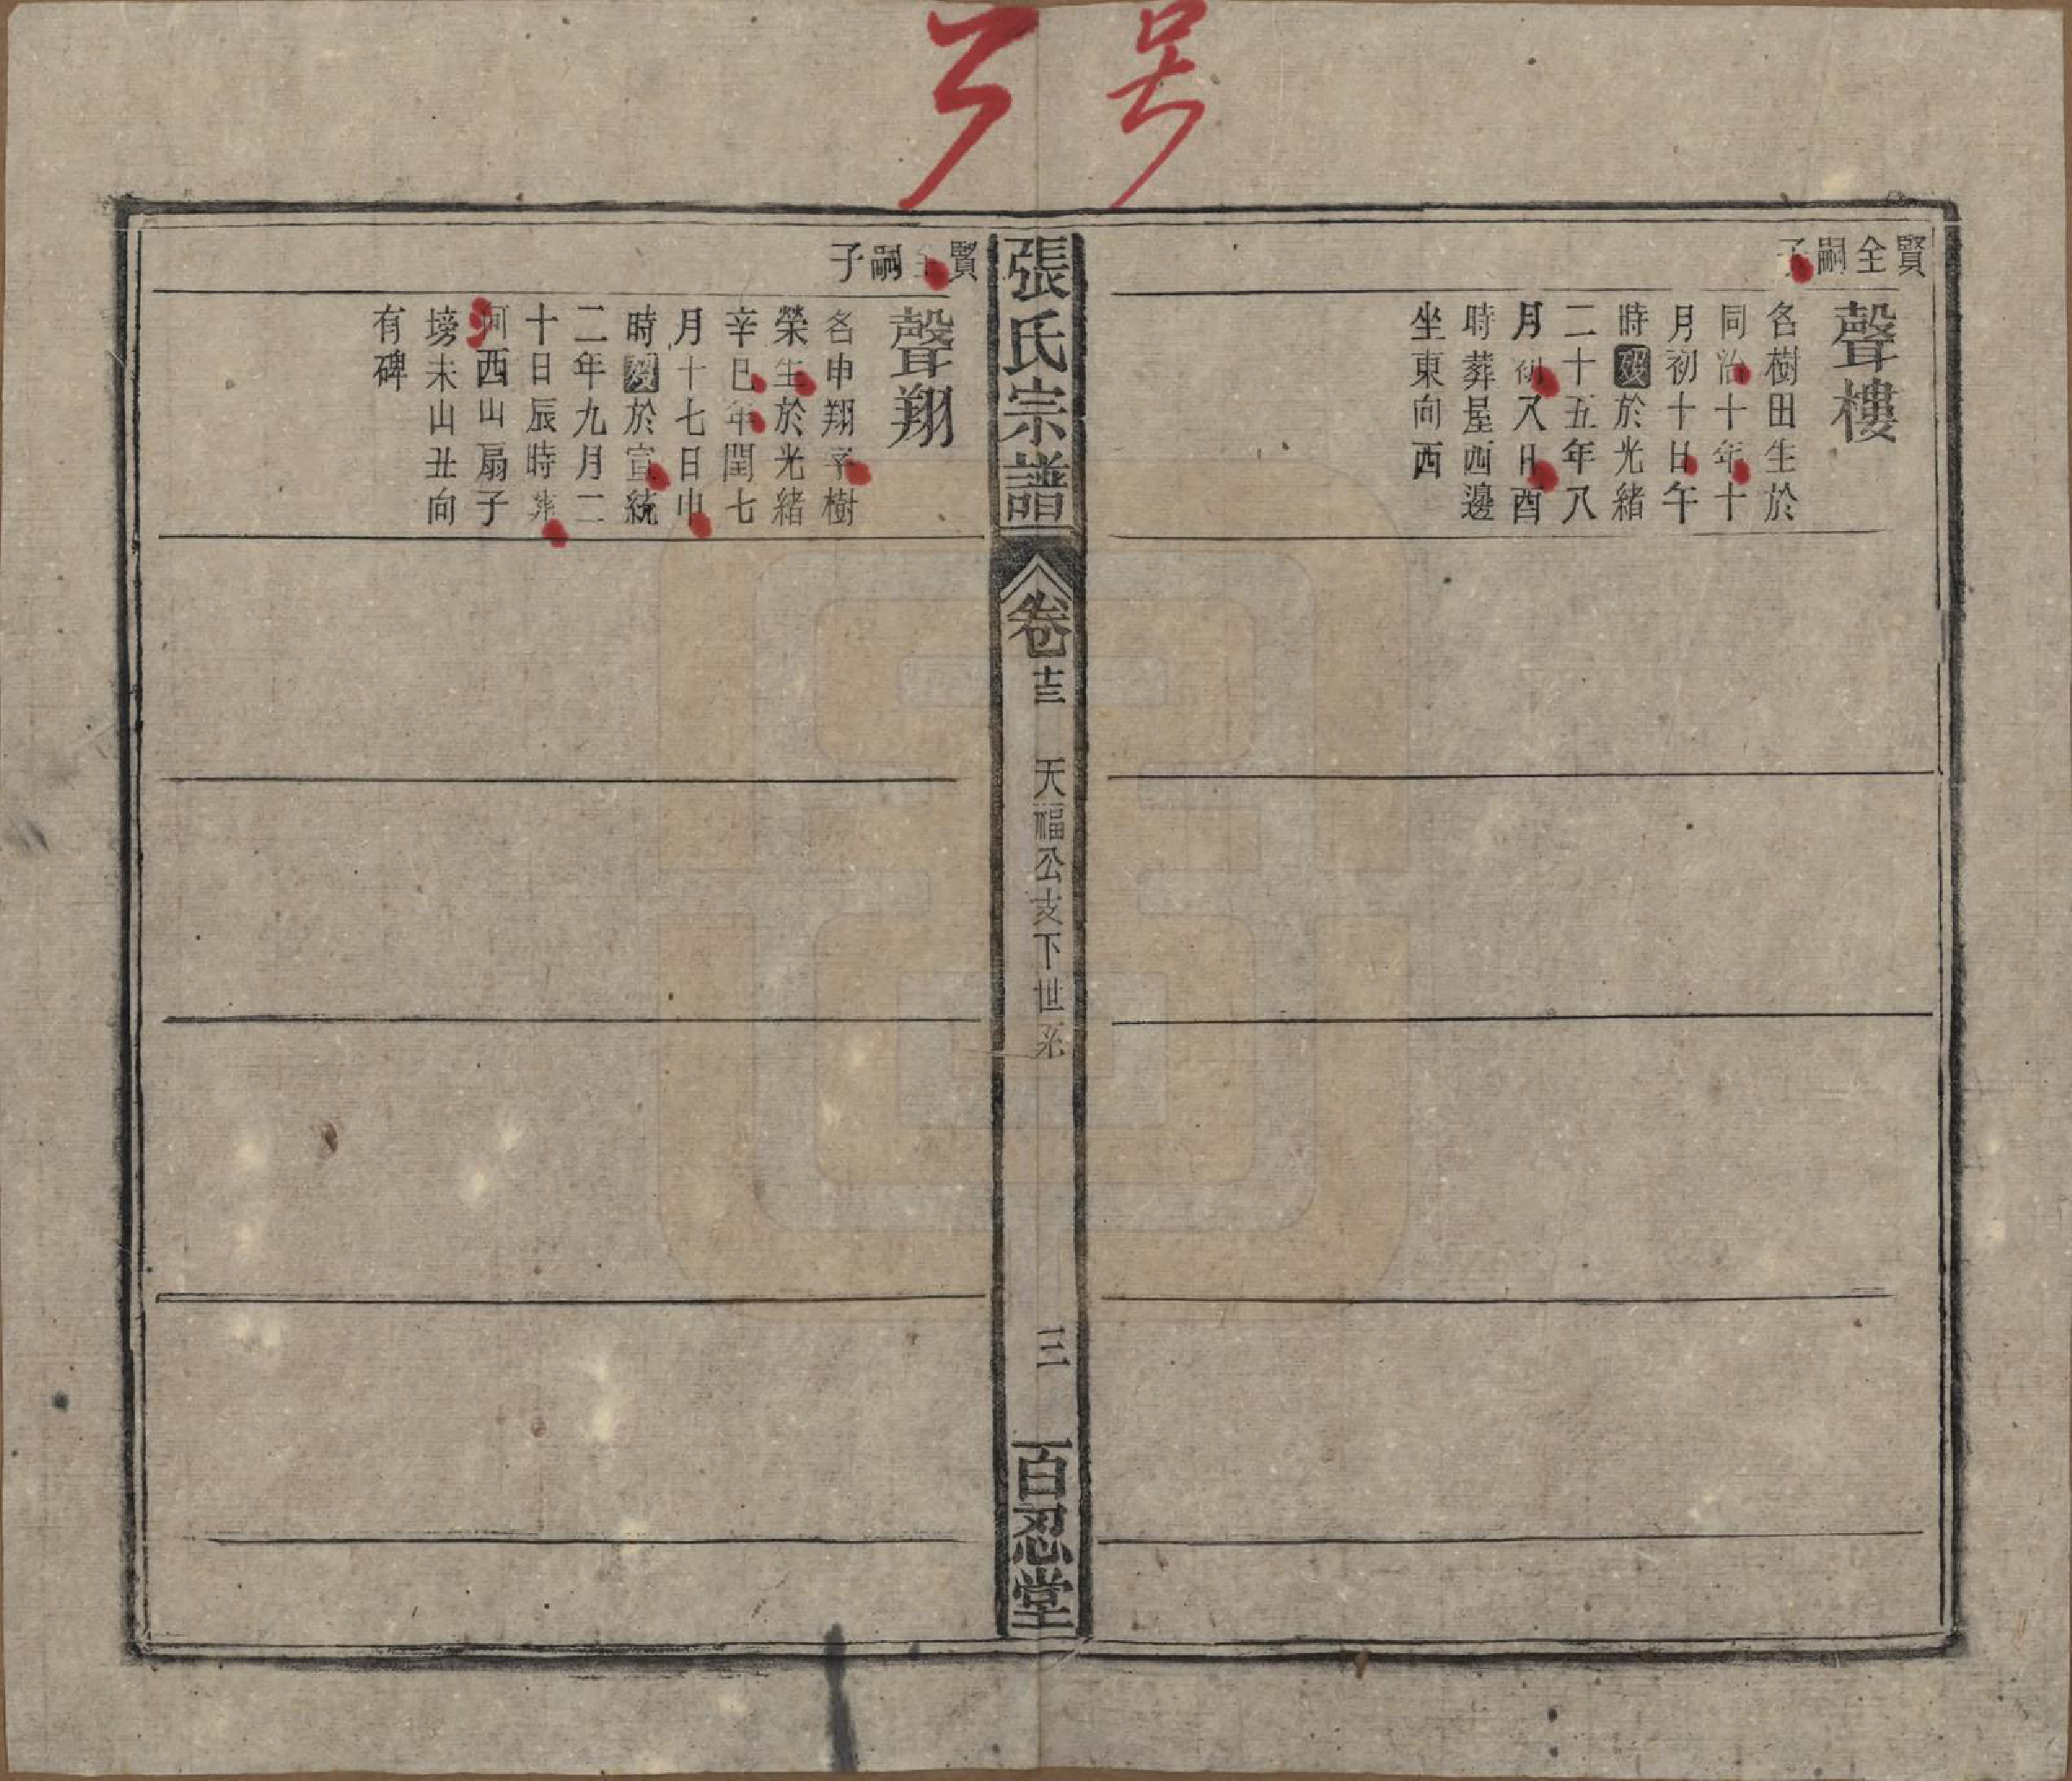 賢全嗣子
聲樓
名樹田生於
同治十年十
月初十日午
時歿於光緒
二十五年八
月初八日酉
時葬屋西邊
坐東向西
張氏宗譜
卷十三
天福公支下世系
三
百忍堂
賢全嗣子
聲翔
名申翔字樹
榮生於光緒
辛巳年閏七
月十七日申
時歿於宣統
二年九月二
十日辰時葬
河西山扇子
塝未山丑向
有碑